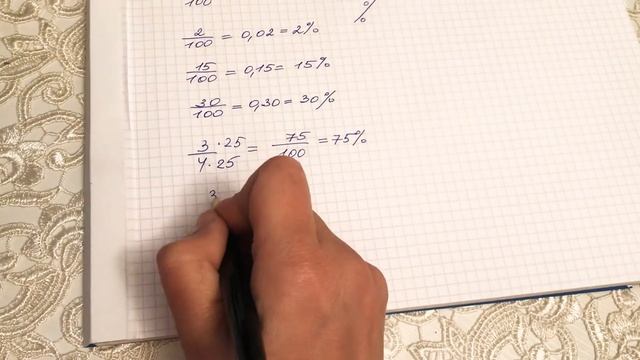 100 %
2/100 = 0,02 = 2%
15/100 = 0,15 = 15%
30/100 = 0,30 = 30%
3 · 25 / 4 · 25 = 75/100 = 75%
3